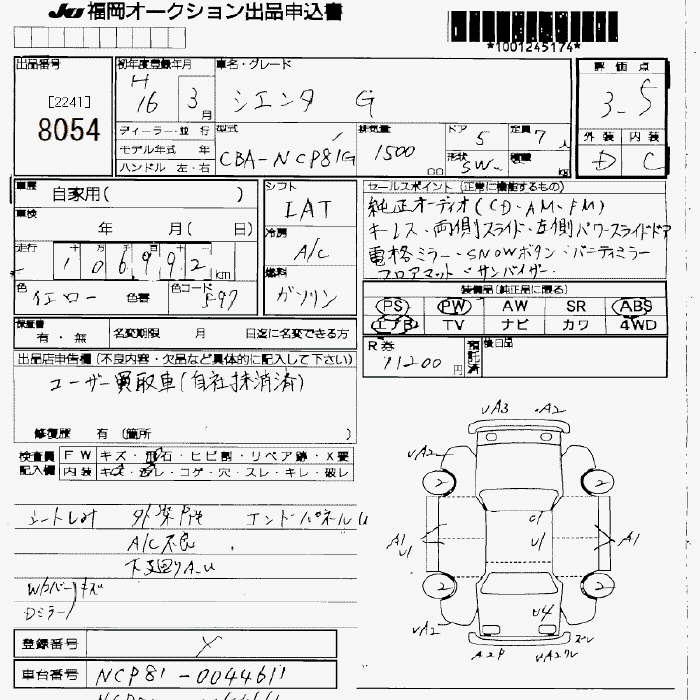 JU 福岡オークション出品申込書
*1001245174*
出品番号
[2241]
8054
初年度登録年月
H
16 3月
車名・グレード
シエンタ G
評価点
3.5
外装 内装
D C
ディーラー・並行
モデル年式 年
ハンドル 左・右
型式
CBA-NCP81G
排気量
1500 cc
ドア 5
定員 7人
形状 SW
積載 kg
車歴
自家用( )
車検
年 月( 日)
走行
十 万 千
1 0 6 9 9 2 km
色
イエロー 色替
色コード
シフト
IAT
冷房
A/C
燃料
ガソリン
セールスポイント (正常に機能するもの)
純正オーディオ(CD・AM・FM)
キーレス・両側スライド・左側パワースライドドア
電格ミラー・SNOWボタン・バニティミラー
フロアマット・サンバイザー
装備品(純正品に限る)
PS PW AW SR ABS
エアB TV ナビ カワ 4WD
保証書
有・無
名変期限 月 日迄に名変できる方
R券
11200円
預託済
後日品
出品店申告欄 (不良内容・欠品など具体的に記入して下さい)
ユーザー買取車(自社抹消済)
修復歴 有 (箇所 )
検査員
記入欄
FW キズ・飛石・ヒビ割・リペア跡・X要
内装 キズ・汚レ・コゲ・穴・スレ・キレ・破レ
エンドパネルU
A/C不良
下廻りA.U
Wルバー キズ
Dミラー
UA3 .A2
UA2
2 2
A1
U1
A1
U1
2 2
U4
UA2
A2P
登録番号
車台番号 NCP81-0044611